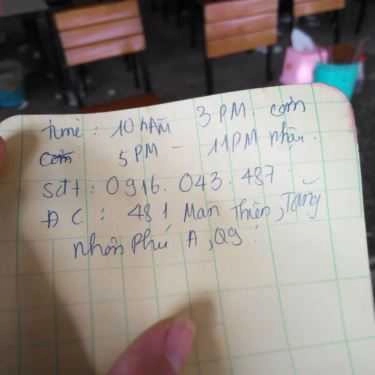 time: 10hAM 3PM cơm
cơm 5 PM - 11PM nhậu.
Sđt: 0916.043.487
ĐC: 481 Man Thiện, Tăng
nhơn Phú A, Q9.